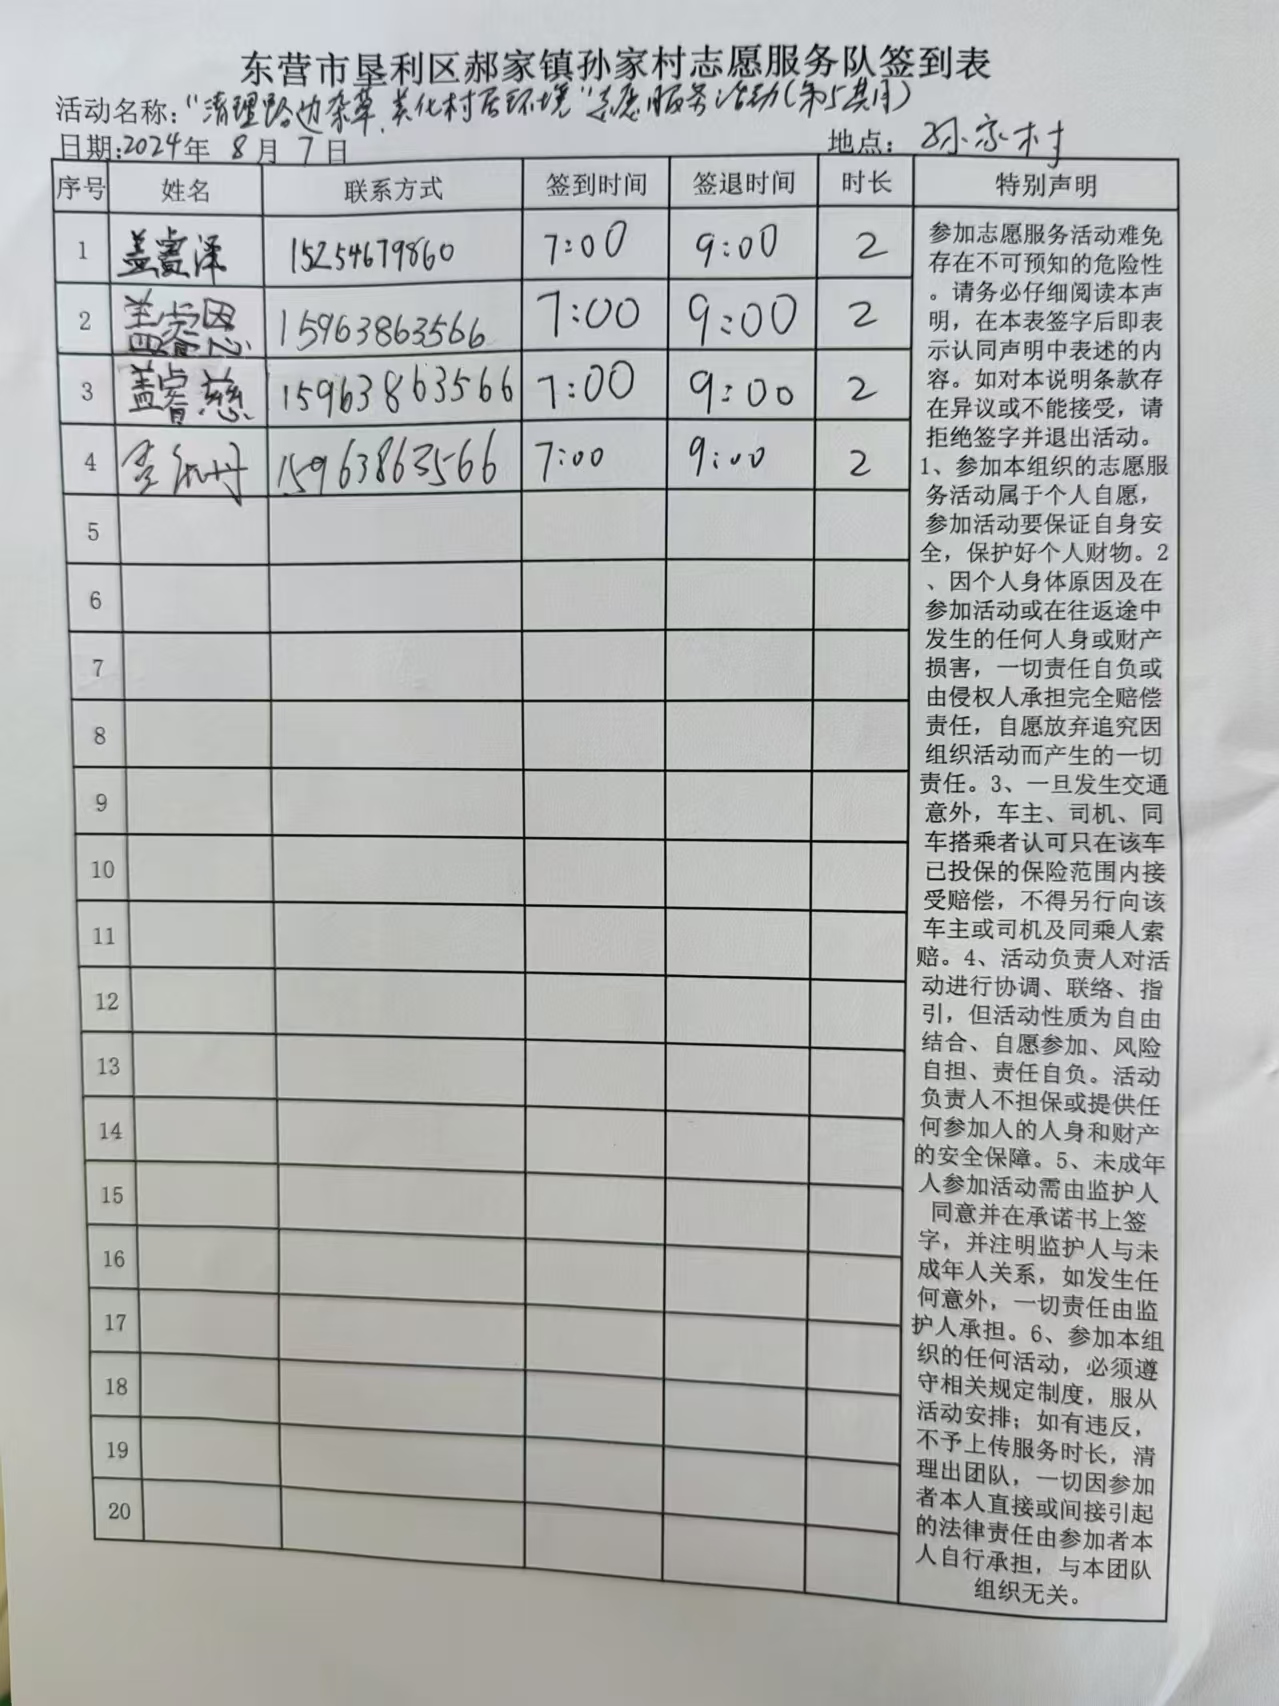 东营市垦利区郝家镇孙家村志愿服务队签到表
活动名称："清理路边杂草,美化村居环境"志愿服务活动(第5期)
日期:2024年 8 月 7 日 地点： 孙家村
序号 姓名 联系方式 签到时间 签退时间 时长 特别声明
1 盖睿泽 15254679860 7:00 9:00 2
2 盖睿恩 15963863566 7:00 9:00 2
3 盖睿慈 15963863566 7:00 9:00 2
4 15963863566 7:00 9:00 2
5
6
7
8
9
10
11
12
13
14
15
16
17
18
19
20
参加志愿服务活动难免
存在不可预知的危险性
。请务必仔细阅读本声
明，在本表签字后即表
示认同声明中表述的内
容。如对本说明条款存
在异议或不能接受，请
拒绝签字并退出活动。
1、参加本组织的志愿服
务活动属于个人自愿，
参加活动要保证自身安
全，保护好个人财物。2
、因个人身体原因及在
参加活动或在往返途中
发生的任何人身或财产
损害，一切责任自负或
由侵权人承担完全赔偿
责任，自愿放弃追究因
组织活动而产生的一切
责任。3、一旦发生交通
意外，车主、司机、同
车搭乘者认可只在该车
已投保的保险范围内接
受赔偿，不得另行向该
车主或司机及同乘人索
赔。4、活动负责人对活
动进行协调、联络、指
引，但活动性质为自由
结合、自愿参加、风险
自担、责任自负。活动
负责人不担保或提供任
何参加人的人身和财产
的安全保障。5、未成年
人参加活动需由监护人
同意并在承诺书上签
字，并注明监护人与未
成年人关系，如发生任
何意外，一切责任由监
护人承担。6、参加本组
织的任何活动，必须遵
守相关规定制度，服从
活动安排；如有违反，
不予上传服务时长，清
理出团队，一切因参加
者本人直接或间接引起
的法律责任由参加者本
人自行承担，与本团队
组织无关。